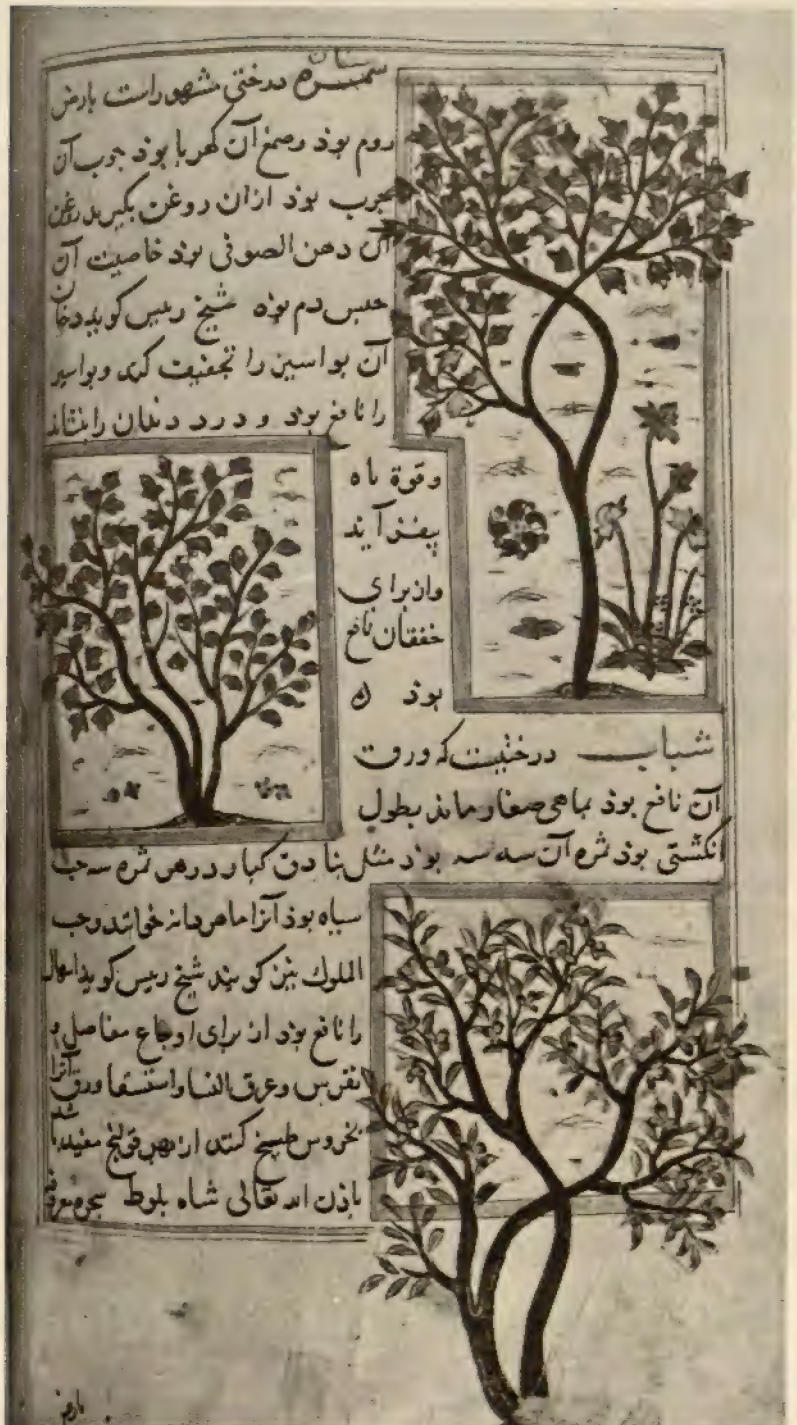 درختی مشهوراست بارض
روم بوذ وصمغ آن کهربا بوذ جوب آن
جرب بوذ ازان روغن بکیرند روغن
آن دهن الصوفی بوذ خاصیت آن
حبس دم بوذ شیخ رییس کوید دخان
آن بواسیر را تجفیف کند وبواسیر
را نافع بوذ و درد دندان را بنشاند
وقوة باه
بیفزاید
وازبرای
خفقان نافع
بوذ
شباب درختیست که ورق
آن نافع بوذ بماهی صغار ماند بطول
انکشتی بوذ ثمره آن سه سه بوذ مثل بنادق کبار ودرهر ثمره سه حب
سیاه بوذ آنرا ماهودانه خوانند وحب
الملوك نیز کویند شیخ رییس کوید اسهال
را نافع بوذ از برای اوجاع مفاصل و
نقرس وعرق النسا واستسقا ورق آنرا
بخروس طبخ کنند ازبهر قولنج مفید باشد
باذن الله تعالی شاه بلوط شجره معروفه
بارض